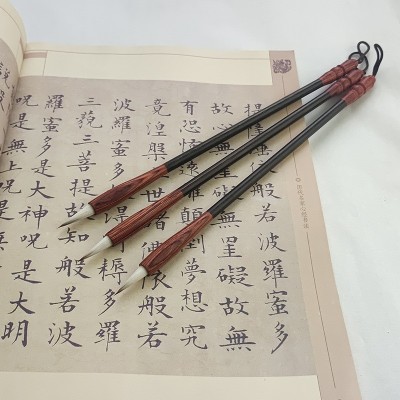 提薩埵依般若波羅蜜多
故心無罣礙故無
有恐怖遠離顛倒夢想究
竟涅槃世諸佛依般若
波羅蜜多耨多羅
三藐三菩提故知般若波
羅蜜多是大神咒是大明
咒是無上咒是